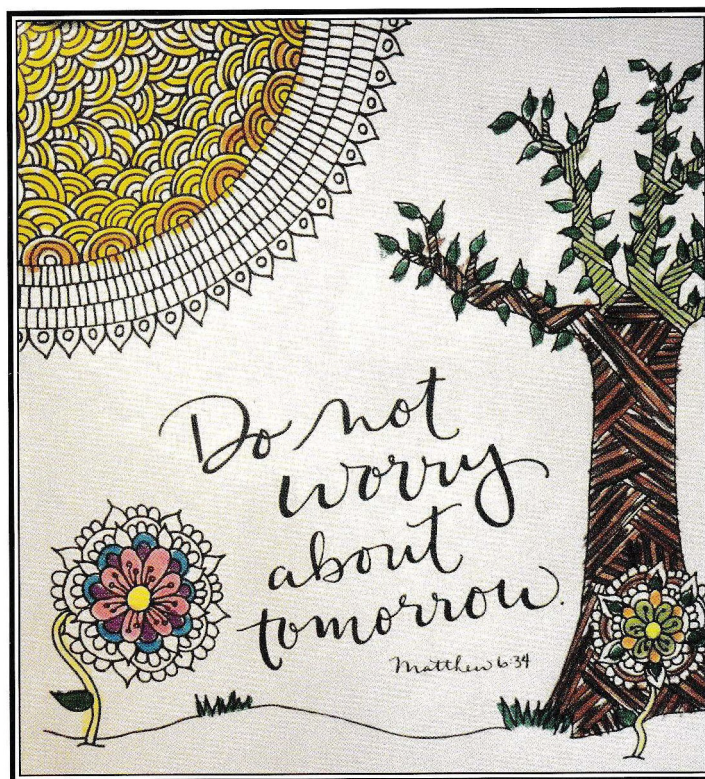 Do not
worry
about
tomorrow.
Matthew 6:34